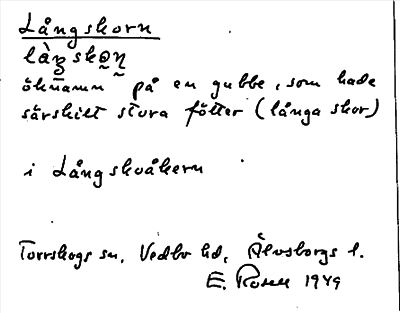 Långskorn
öknamn på en gubbe, som hade
särskilt stora fötter (långa skor)
i Långskoåkern
Torrskogs sn, Vedbo hd, Älvsborgs l.
E. Rosell 1949